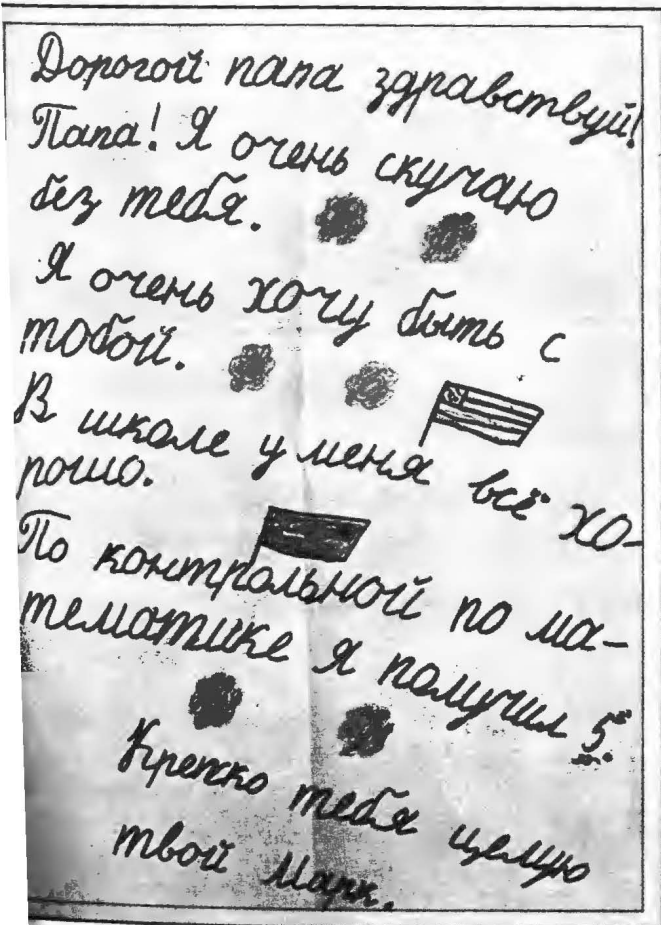 Дорогой папа здравствуй!
Папа! Я очень скучаю
без тебя.
Я очень хочу быть с
тобой.
В школе у меня всё хо-
рошо.
По контрольной по ма-
тематике я получил 5
Крепко тебя целую
твой Марк.